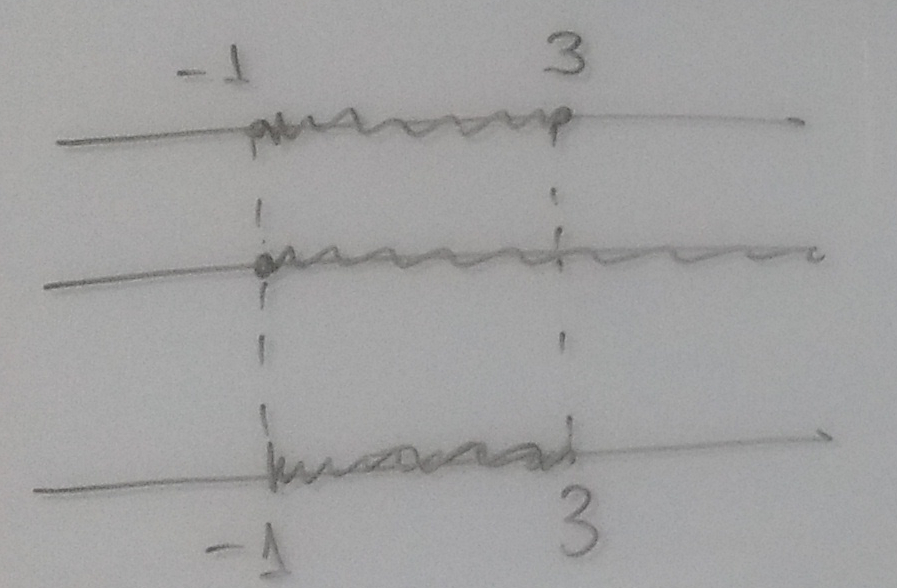 -1 3
-1 3